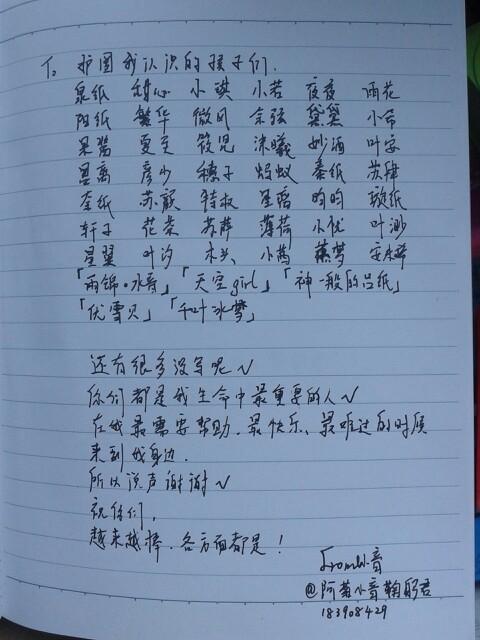 To 护圈我认识的孩子们.
泉纸 甜心 小琪 小若 夜夜 雨花
阳纸 繁华 微风 余弦 黛黛 小帝
果酱 夏至 筱児 沐曦 妙酒 叶安
离 彦少 穗子 蚂蚁 秦纸 苏肆
奎纸 苏 特叔 昀昀 璇纸
轩子 花荣 苏萍 薄荷 小忧 叶渺
星翼 叶汐 木头 小茜 梦
「雨锦·水音」「天空girl」「神一般的吕纸」
「伏雪贝」「千叶冰梦」
还有很多没写呢~
你们都是我生命中最重要的人~
在我最需要帮助、最快乐、最难过的时候
来到我身边.
所以说声谢谢~
祝你们,
越来越棒.各方面都是!
From小音
@阿菊小音鞠躬君
183908429